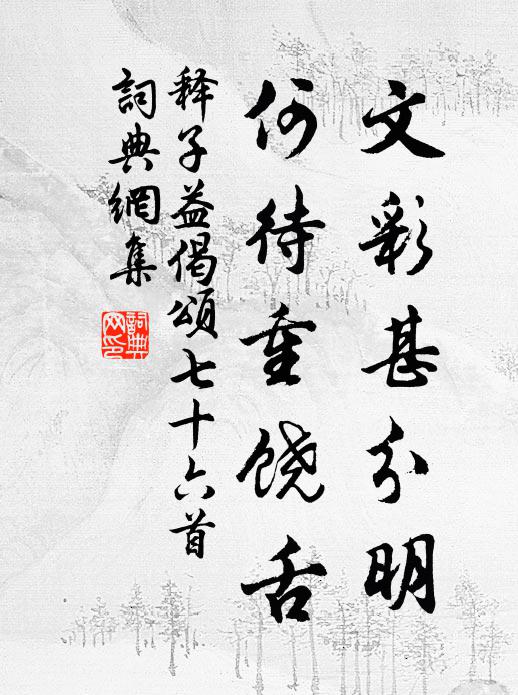 文彩甚分明
何待重饶舌
释子益偈颂七十六首
詞典網集
詞典网印